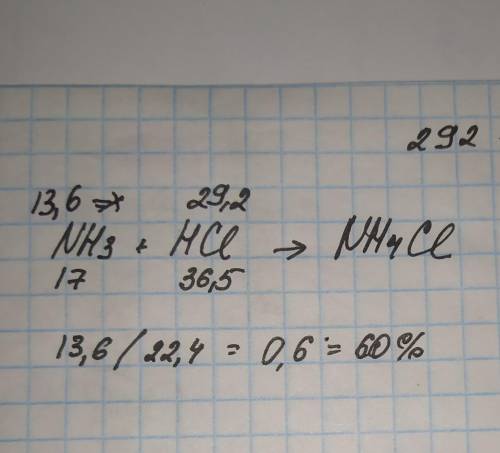 292
13,6 => x 29,2
NH3 + HCl → NH4Cl
17 36,5
13,6 / 22,4 = 0,6 = 60%